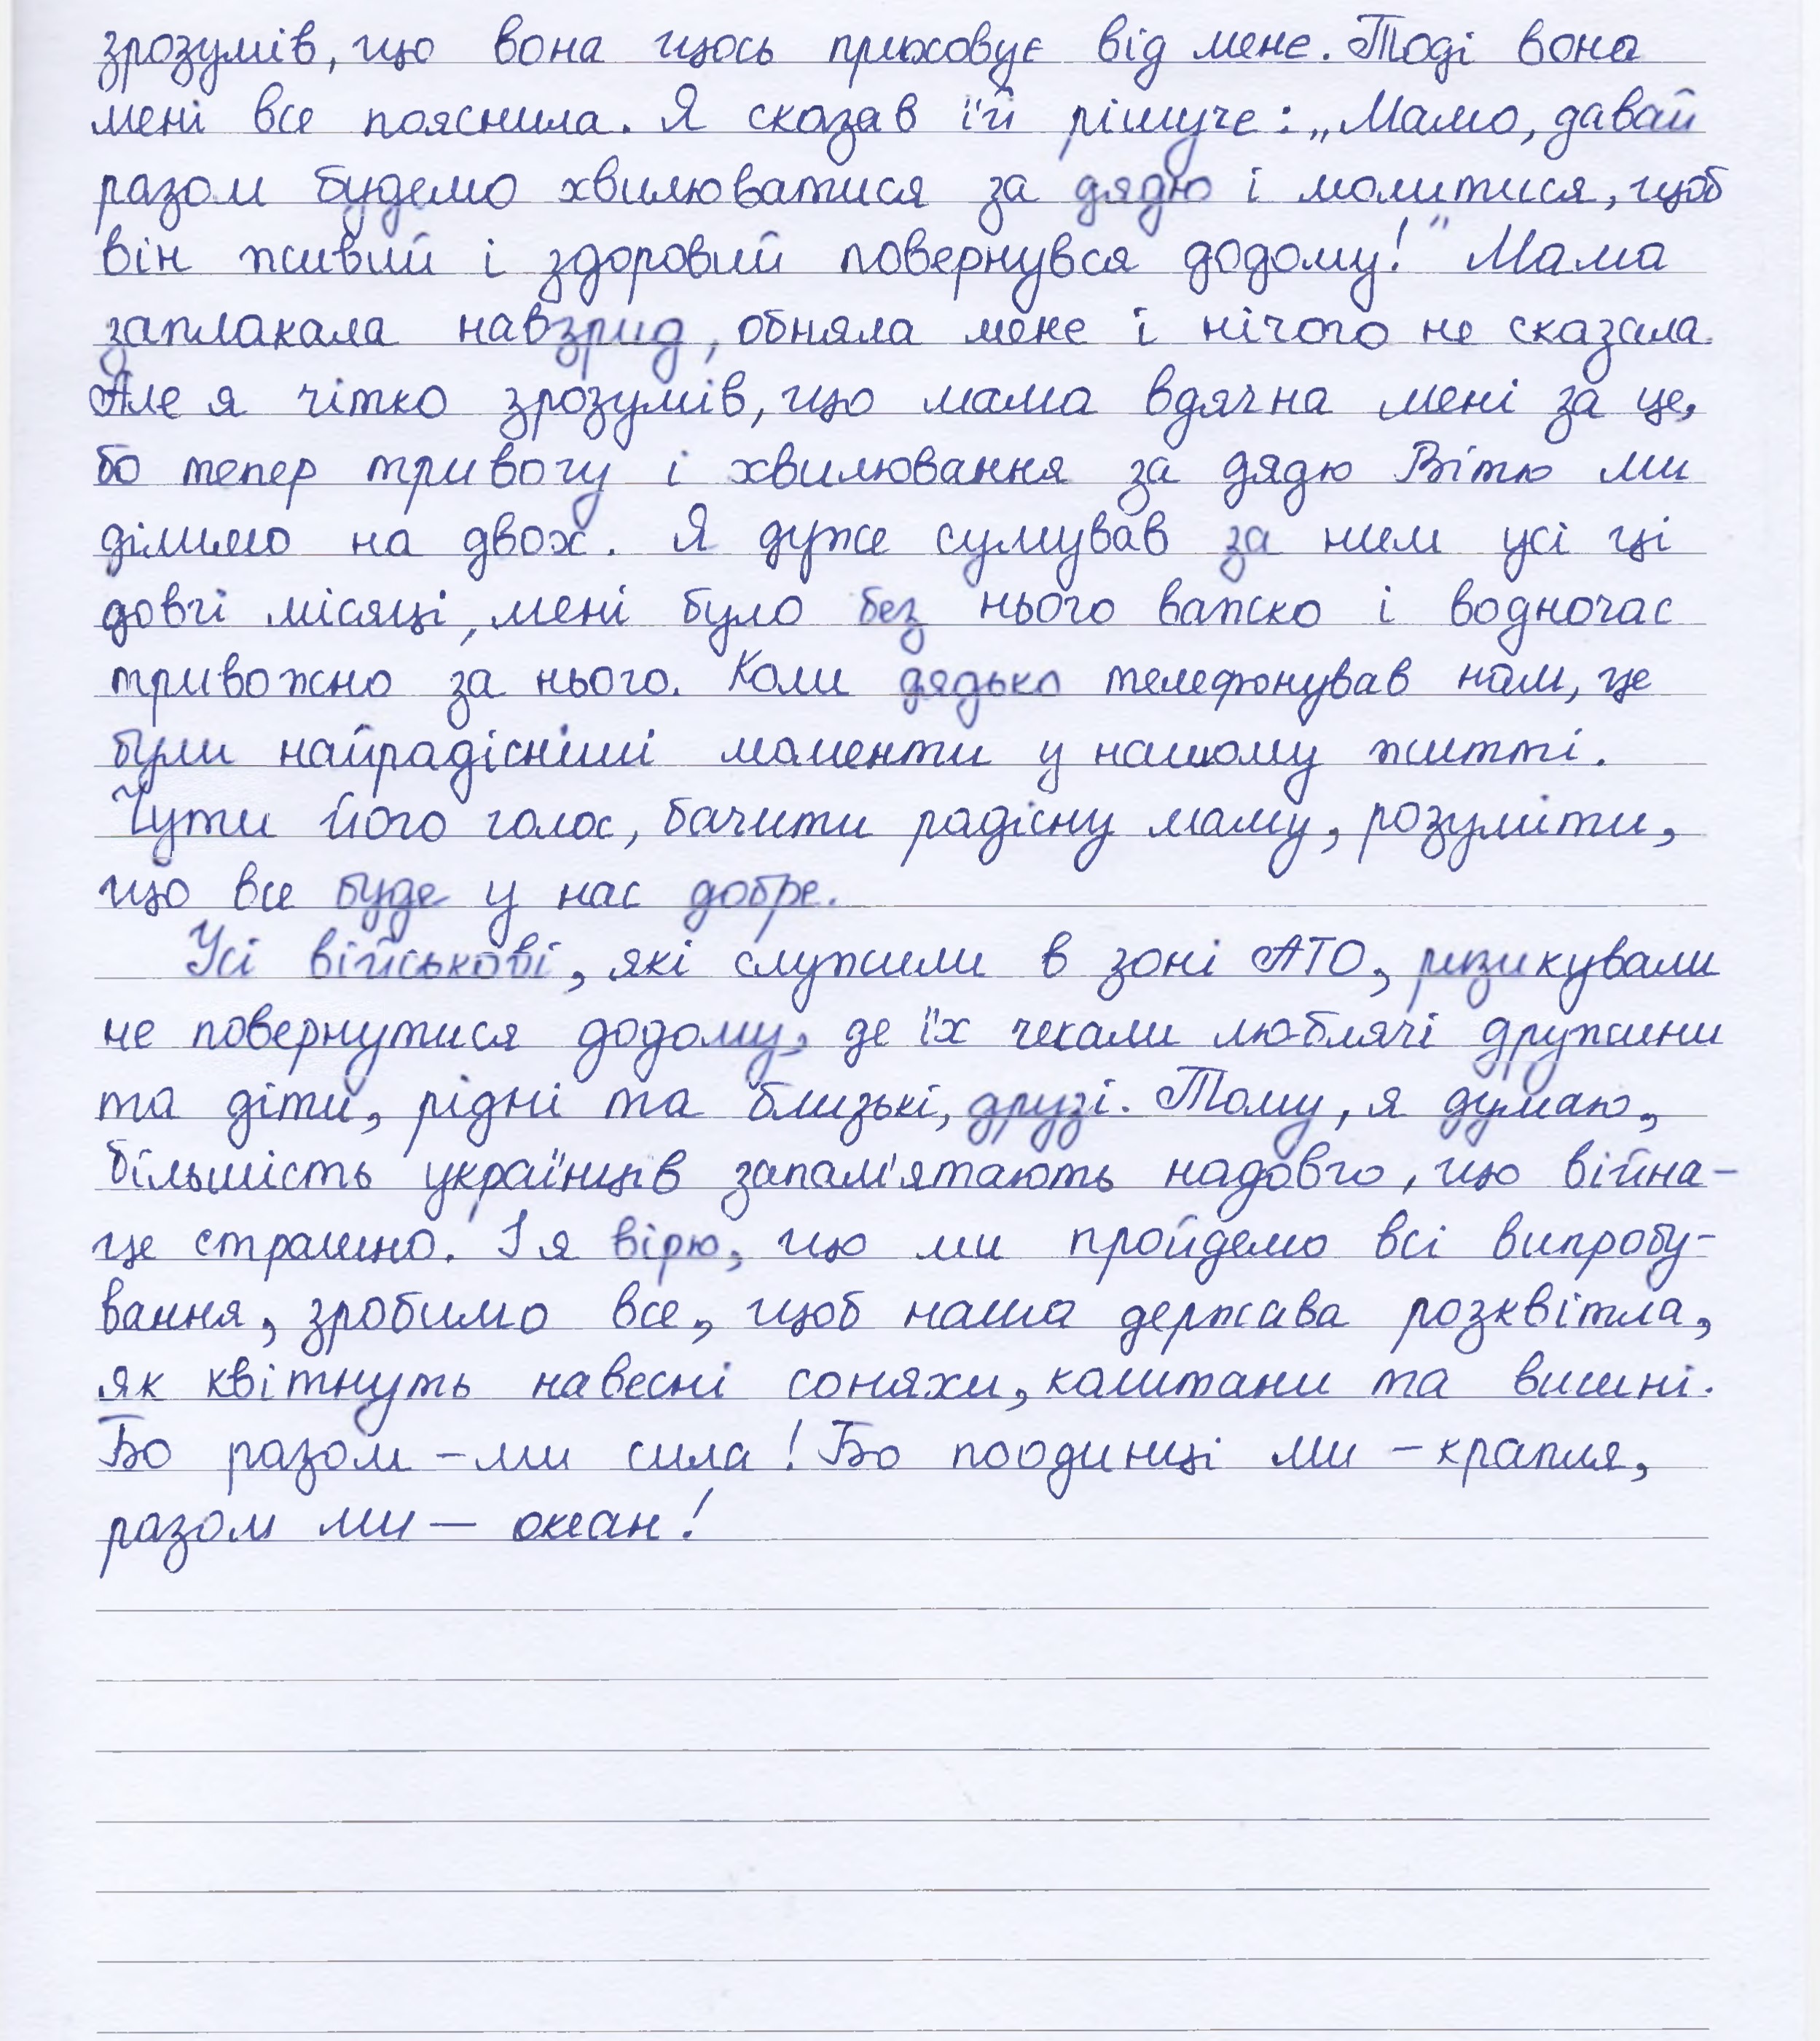 зрозумів, що вона щось приховує від мене. Тоді вона
мені все пояснила. Я сказав їй рішуче: „Мамо, давай
разом будемо хвилюватися за дядю і молитися, щоб
він живий і здоровий повернувся додому!" Мама
заплакала навзрид, обняла мене і нічого не сказала.
Але я чітко зрозумів, що мама вдячна мені за це,
бо тепер тривогу і хвилювання за дядю Вітю ми
ділимо на двох. Я дуже сумував за ним усі ці
довгі місяці, мені було без нього важко і водночас
тривожно за нього. Коли дядько телефонував нам, це
були найрадісніші моменти у нашому житті.
Чути його голос, бачити радісну маму, розуміти,
що все буде у нас добре.
Усі військові, які служили в зоні АТО, ризикували
не повернутися додому, де їх чекали люблячі дружини
та діти, рідні та близькі, друзі. Тому, я думаю,
більшість українців запам'ятають надовго, що війна –
це страшно. І я вірю, що ми пройдемо всі випробу-
вання, зробимо все, щоб наша держава розквітла,
як квітнуть навесні соняхи, каштани та вишні.
Бо разом – ми сила! Бо поодинці ми – крапля,
разом ми — океан!